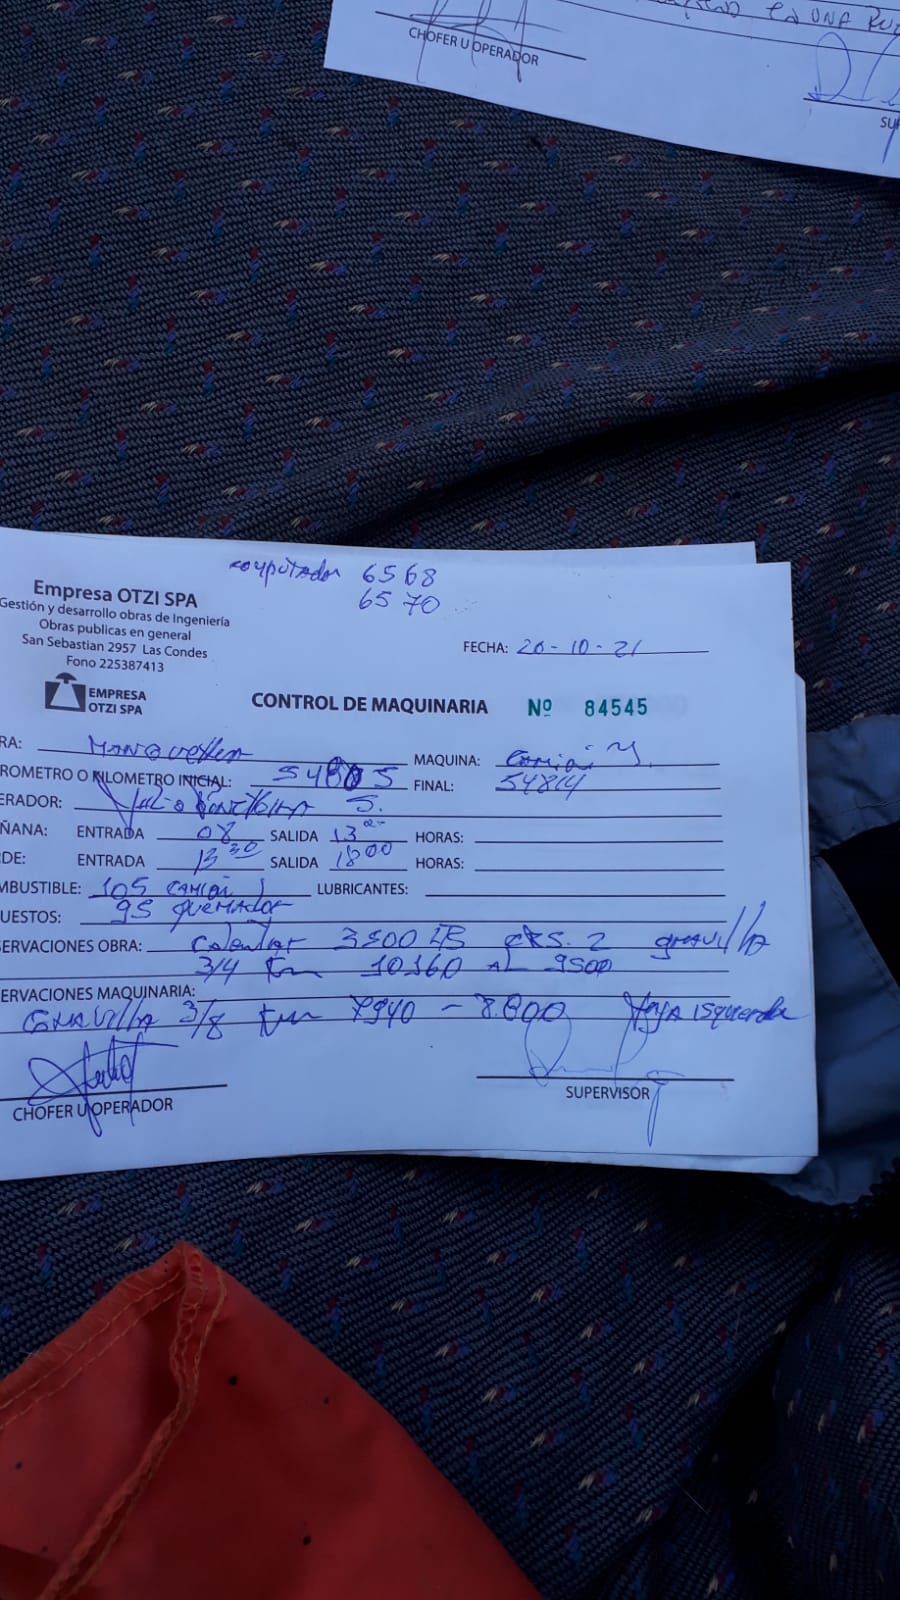 CHOFER U OPERADOR
en una
SUP
computador 6568
6570
Empresa OTZI SPA
Gestión y desarrollo obras de Ingeniería
Obras publicas en general
San Sebastian 2957 Las Condes
Fono 225387413
EMPRESA
OTZI SPA
FECHA: 20-10-21
CONTROL DE MAQUINARIA Nº 84545
RA: MAQUINA: Camión
ROMETRO O KILOMETRO INICIAL: 54805 FINAL: 54814
ERADOR: S.
ÑANA: ENTRADA 08 SALIDA 13 HORAS:
DE: ENTRADA 13 30 SALIDA 18 00 HORAS:
MBUSTIBLE: 105 camión LUBRICANTES:
UESTOS: 95 quemador
SERVACIONES OBRA: Calentar 3500 CRS. 2 gravilla
3/4 Km 10160 AL 9500
SERVACIONES MAQUINARIA:
Gravilla 3/8 Km 7940 - 8.800 faja isquerda
CHOFER U OPERADOR
SUPERVISOR